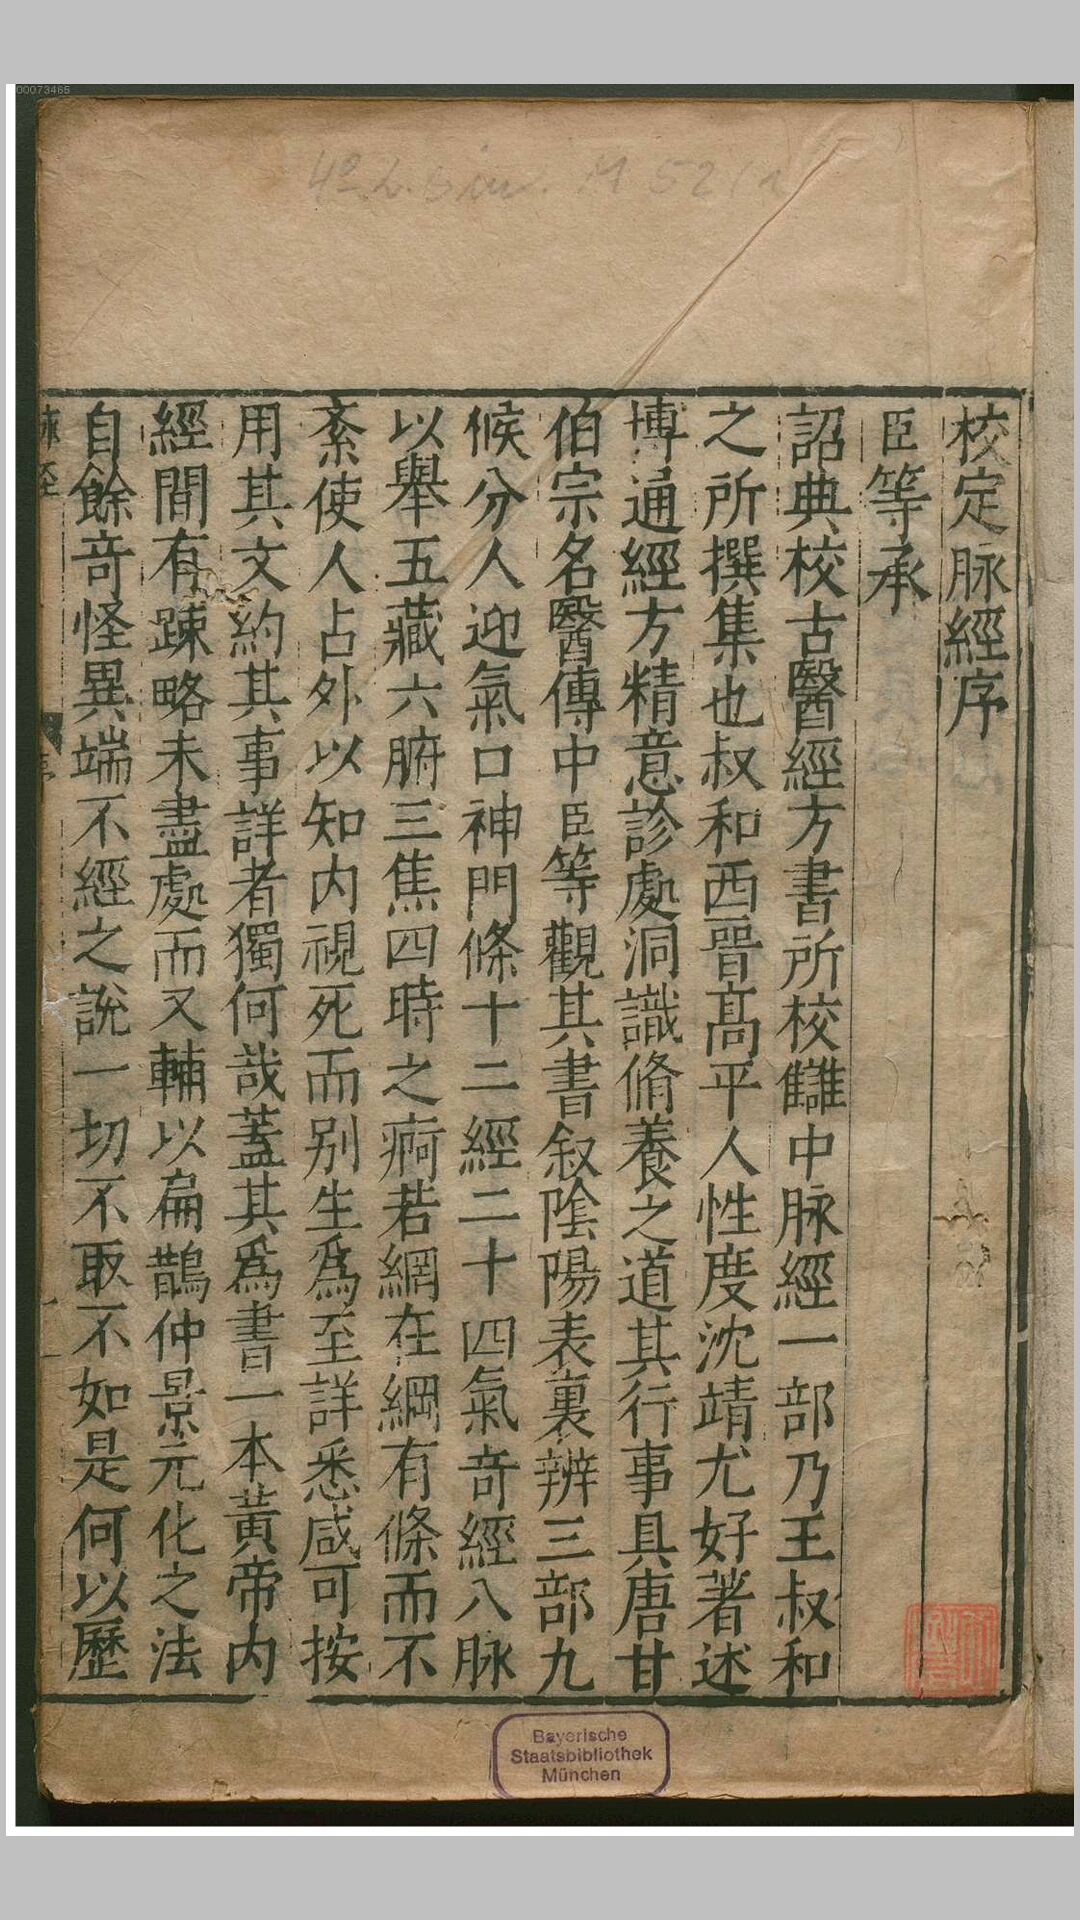 00073465
4° L. sin. M 52(1
校定脉經序
臣等承
詔典校古醫經方書所校讎中脉經一部乃王叔和
之所撰集也叔和西晉高平人性度沈靖尤好著述
博通經方精意診處洞識脩養之道其行事具唐甘
伯宗名醫傳中臣等觀其書叙隂陽表裏辨三部九
候分人迎氣口神門條十二經二十四氣竒經八脉
以舉五藏六腑三焦四時之痾若網在綱有條而不
紊使人占外以知内視死而别生爲至詳悉咸可按
用其文約其事詳者獨何哉蓋其爲書一本黄帝内
經間有踈略未盡處而又輔以扁鵲仲景元化之法
自餘竒怪異端不經之說一切不取不如是何以歷
脉經
序
一
Bayerische
Staatsbibliothek
München